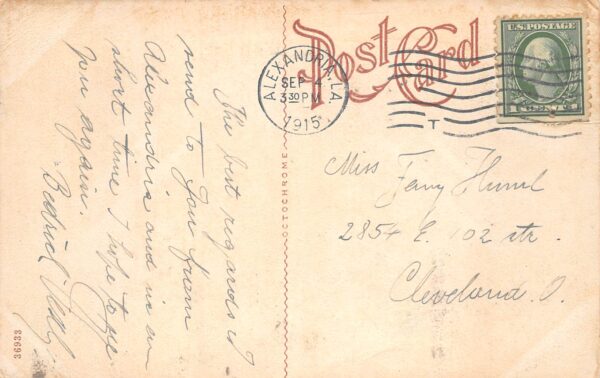 Post Card
ALEXANDRIA, LA.
SEP 4
3 30 PM
1915
T
U.S. POSTAGE
1 CENT 1
OCTOCHROME
36933
The best regards I
send to you from
Alexandria and in a
short time I hope to see
you again.
Miss Fany
2854 E. 102 str.
Cleveland. O.